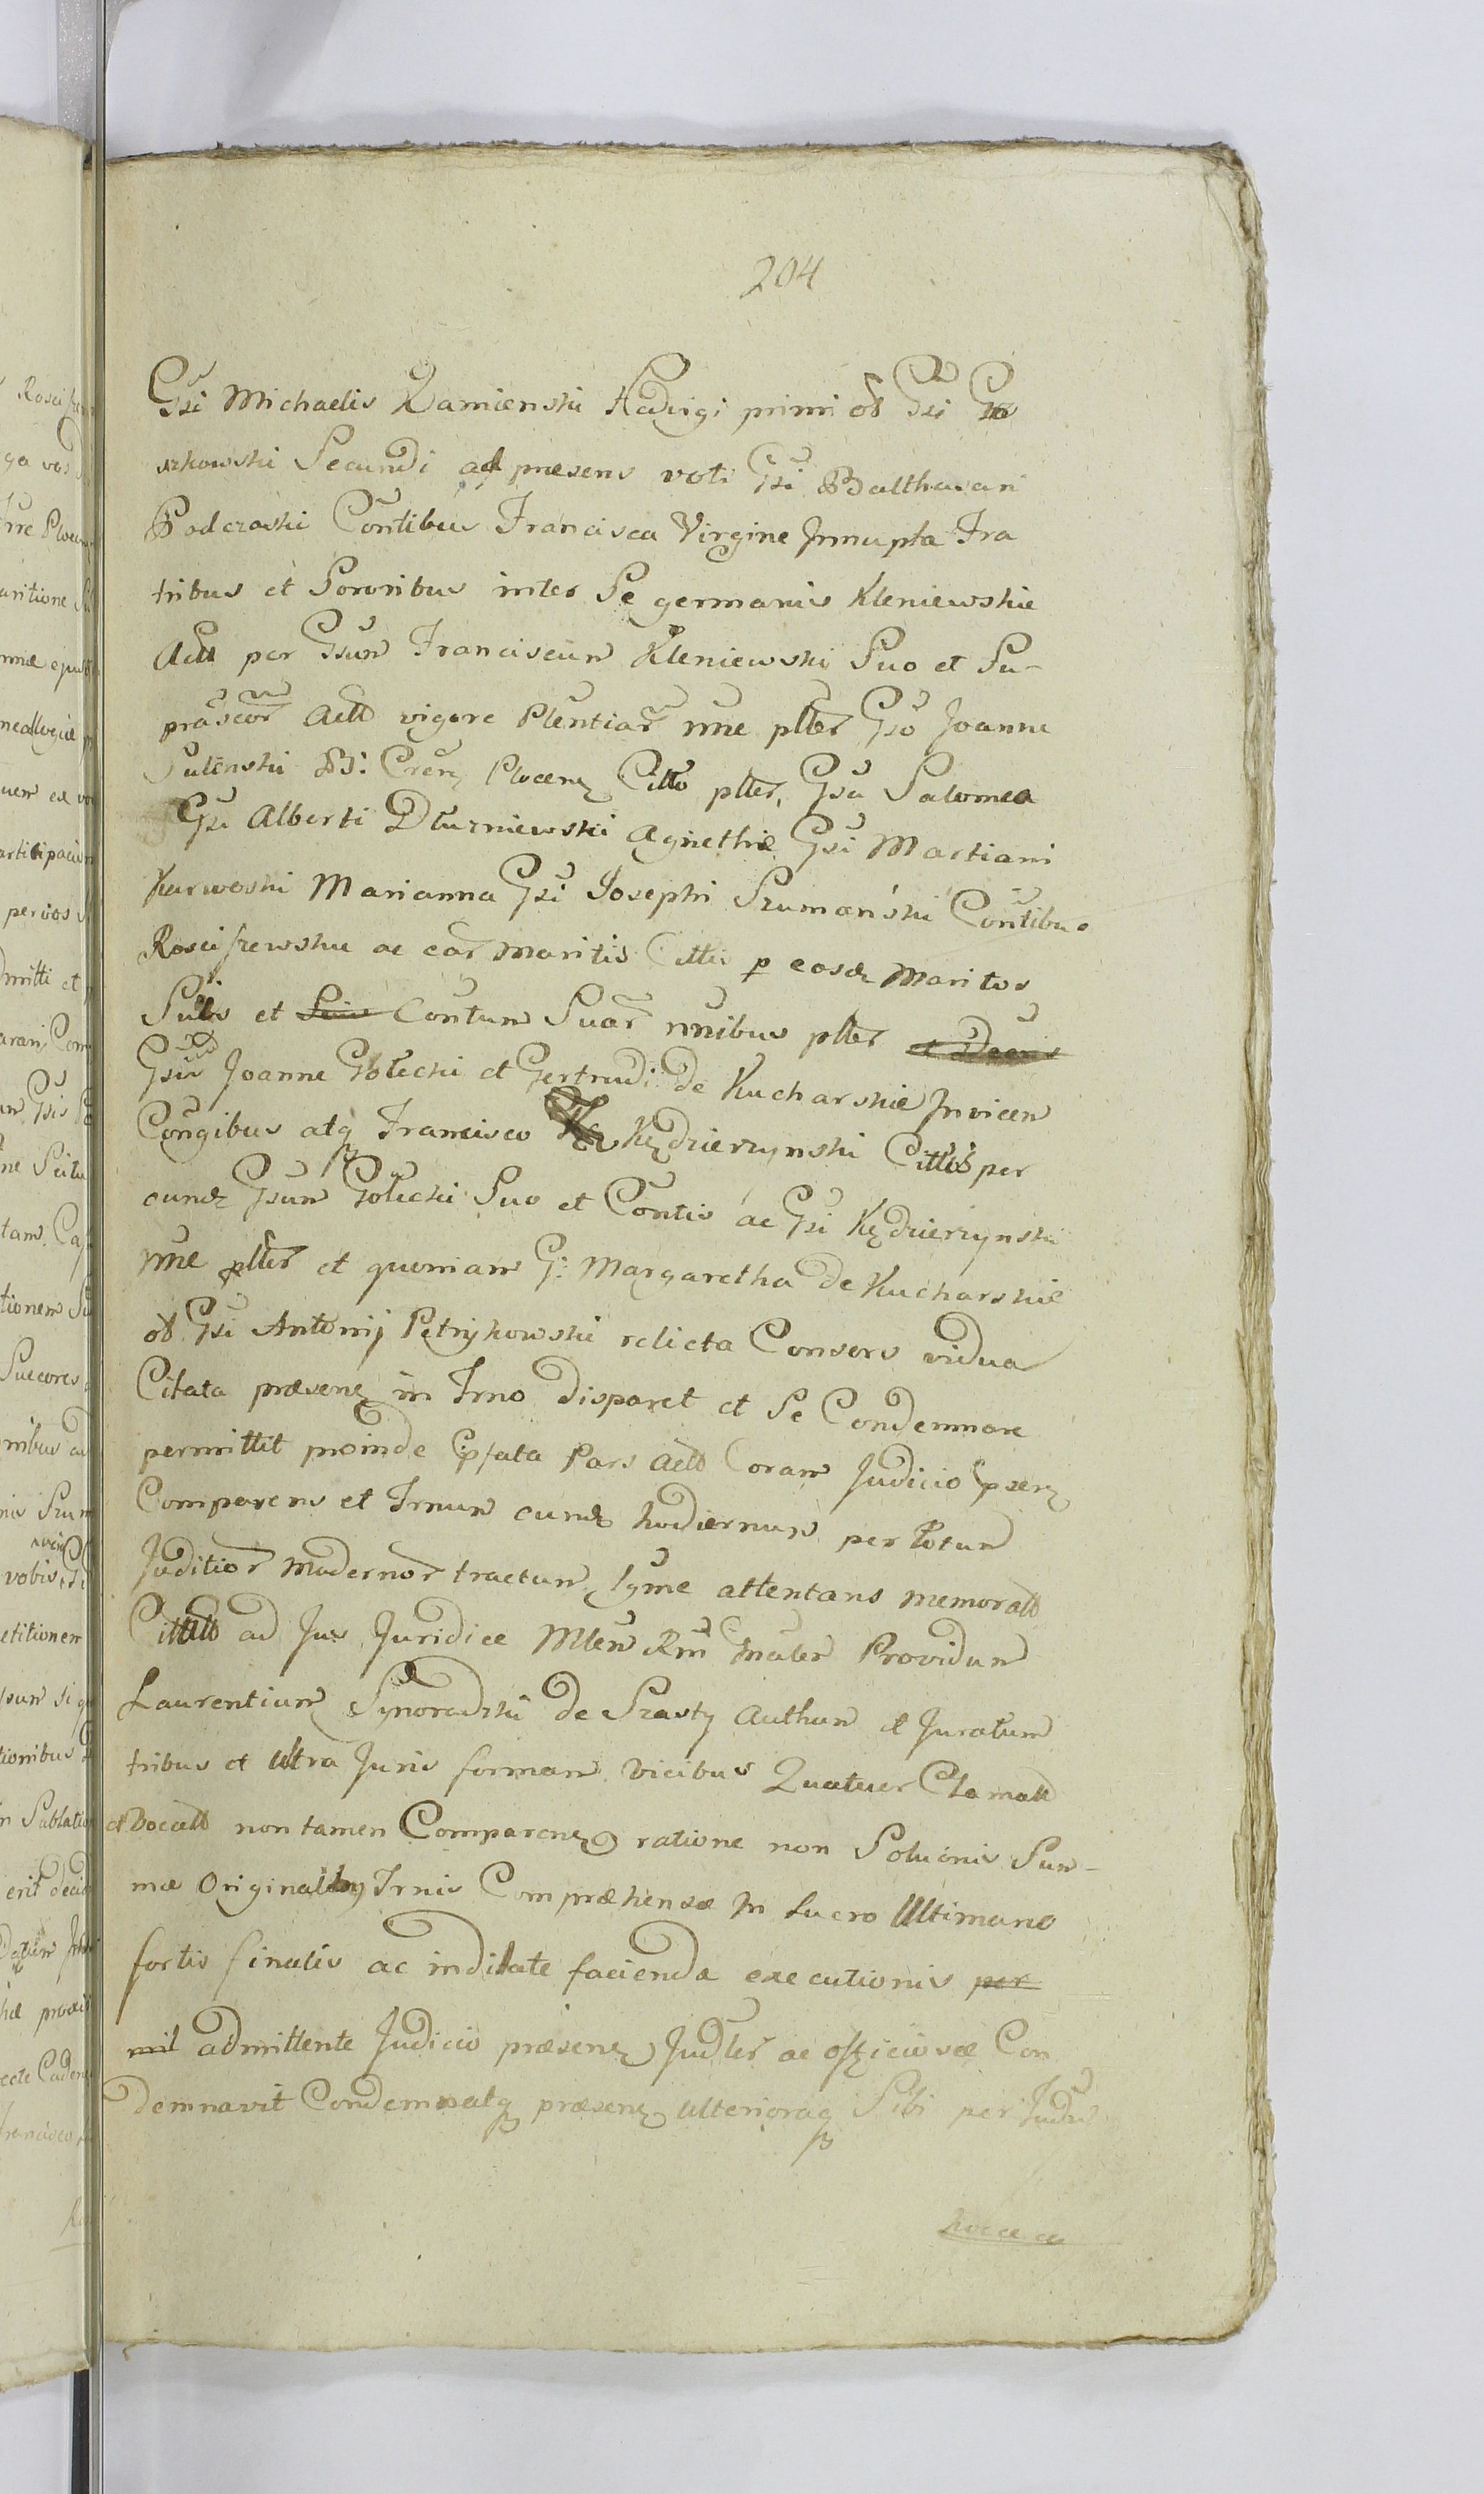 204
Gsi Michaelis Kamienski Hedvigi primi ol Gsi Go
szkowski Secundi ad praesens voti Gsi Balthasari
Podczaski Contibus Francisca Virgine Jnnupta Fra
tribus et Sororibus inter Se germanis Kleniewskie
Actt per Gsun Franciscun Kleniewski Suo et Su-
prascor Actt vigore Plentiar nne plter Gso Joanne
Sulenski B: Cren Plocen Citto plter, Gsa Salomea
Gsi Alberti Dłużniewski Agnethae Gsi Martiani
Karwoski Marianna Gsi Josephi Szumański Contibus
Rosciszewskie ac ear Maritis Cittis p eosd Maritos
Suis et Suis Contun Suar nnibus plter
Gsis Joanne Gołecki et Gertrudi de Kucharskie Jnvicen
Congibus atq Francisco Kędzierzynski Cittis per
eund Gsun Gołecki Suo et Contis ac Gsi Kędzierzynski
nne plter et quoniam G: Margaretha de Kucharskie
ol Gsi Antonij Pętrykowski relicta Consors vidua
Citata praesenz in Trno disparet et Se Condemnare
permittit proinde Epfata Pars Actt Coram Judicio pserz
Comparens et Trnun eund hodiernun per totun
Juditior Modernor tractun lgme attentans memoratt
Cittatt ad Jus Juridice Mten Rni Gnalen Providun
Laurentium Synoradzki de Szasty Authun et Juratum
tribus et ultra Juris forman vicibus Quatuer Clamatt
et Vocatt non tamen Comparenz ratione non Soluonis Sun-
mae Originalibq Trnis Compraehensae Jn Lucro Ultimano
fortis finalis ac inditate facienda executionis per
mit admittente Judicio praesenz Judler ac officiosae Con
demnavit Condemnatq praesenz ulterioraq Sibi per Judu